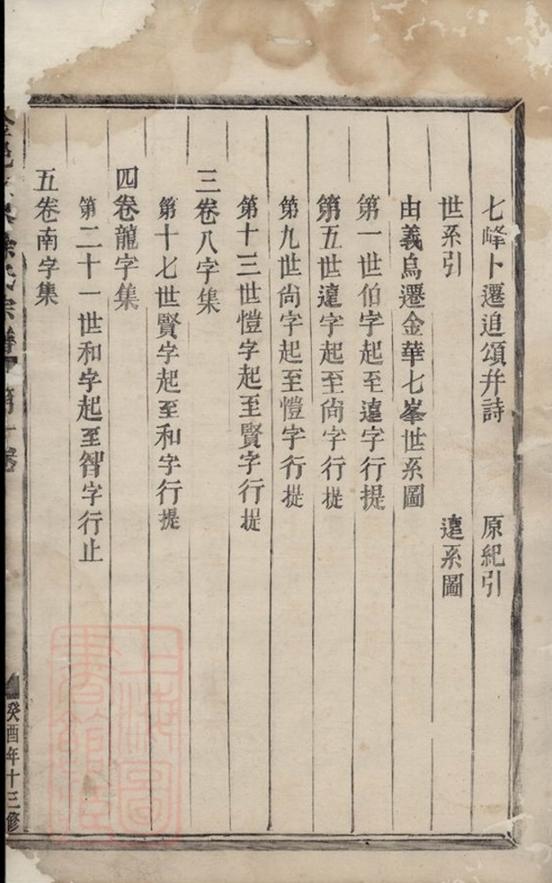 七峰卜遷追頌幷詩　原紀引
世系引　遠系圖
由義烏遷金華七峯世系圖
第一世伯字起至遠字行提
第五世遠字起至尙字行提
第九世尙字起至愷字行提
第十三世愷字起至賢字行提
三卷八字集
第十七世賢字起至和字行提
四卷龍字集
第二十一世和字起至智字行止
五卷南字集
氏宗譜　第一卷　癸酉年十三修
上海圖書館藏